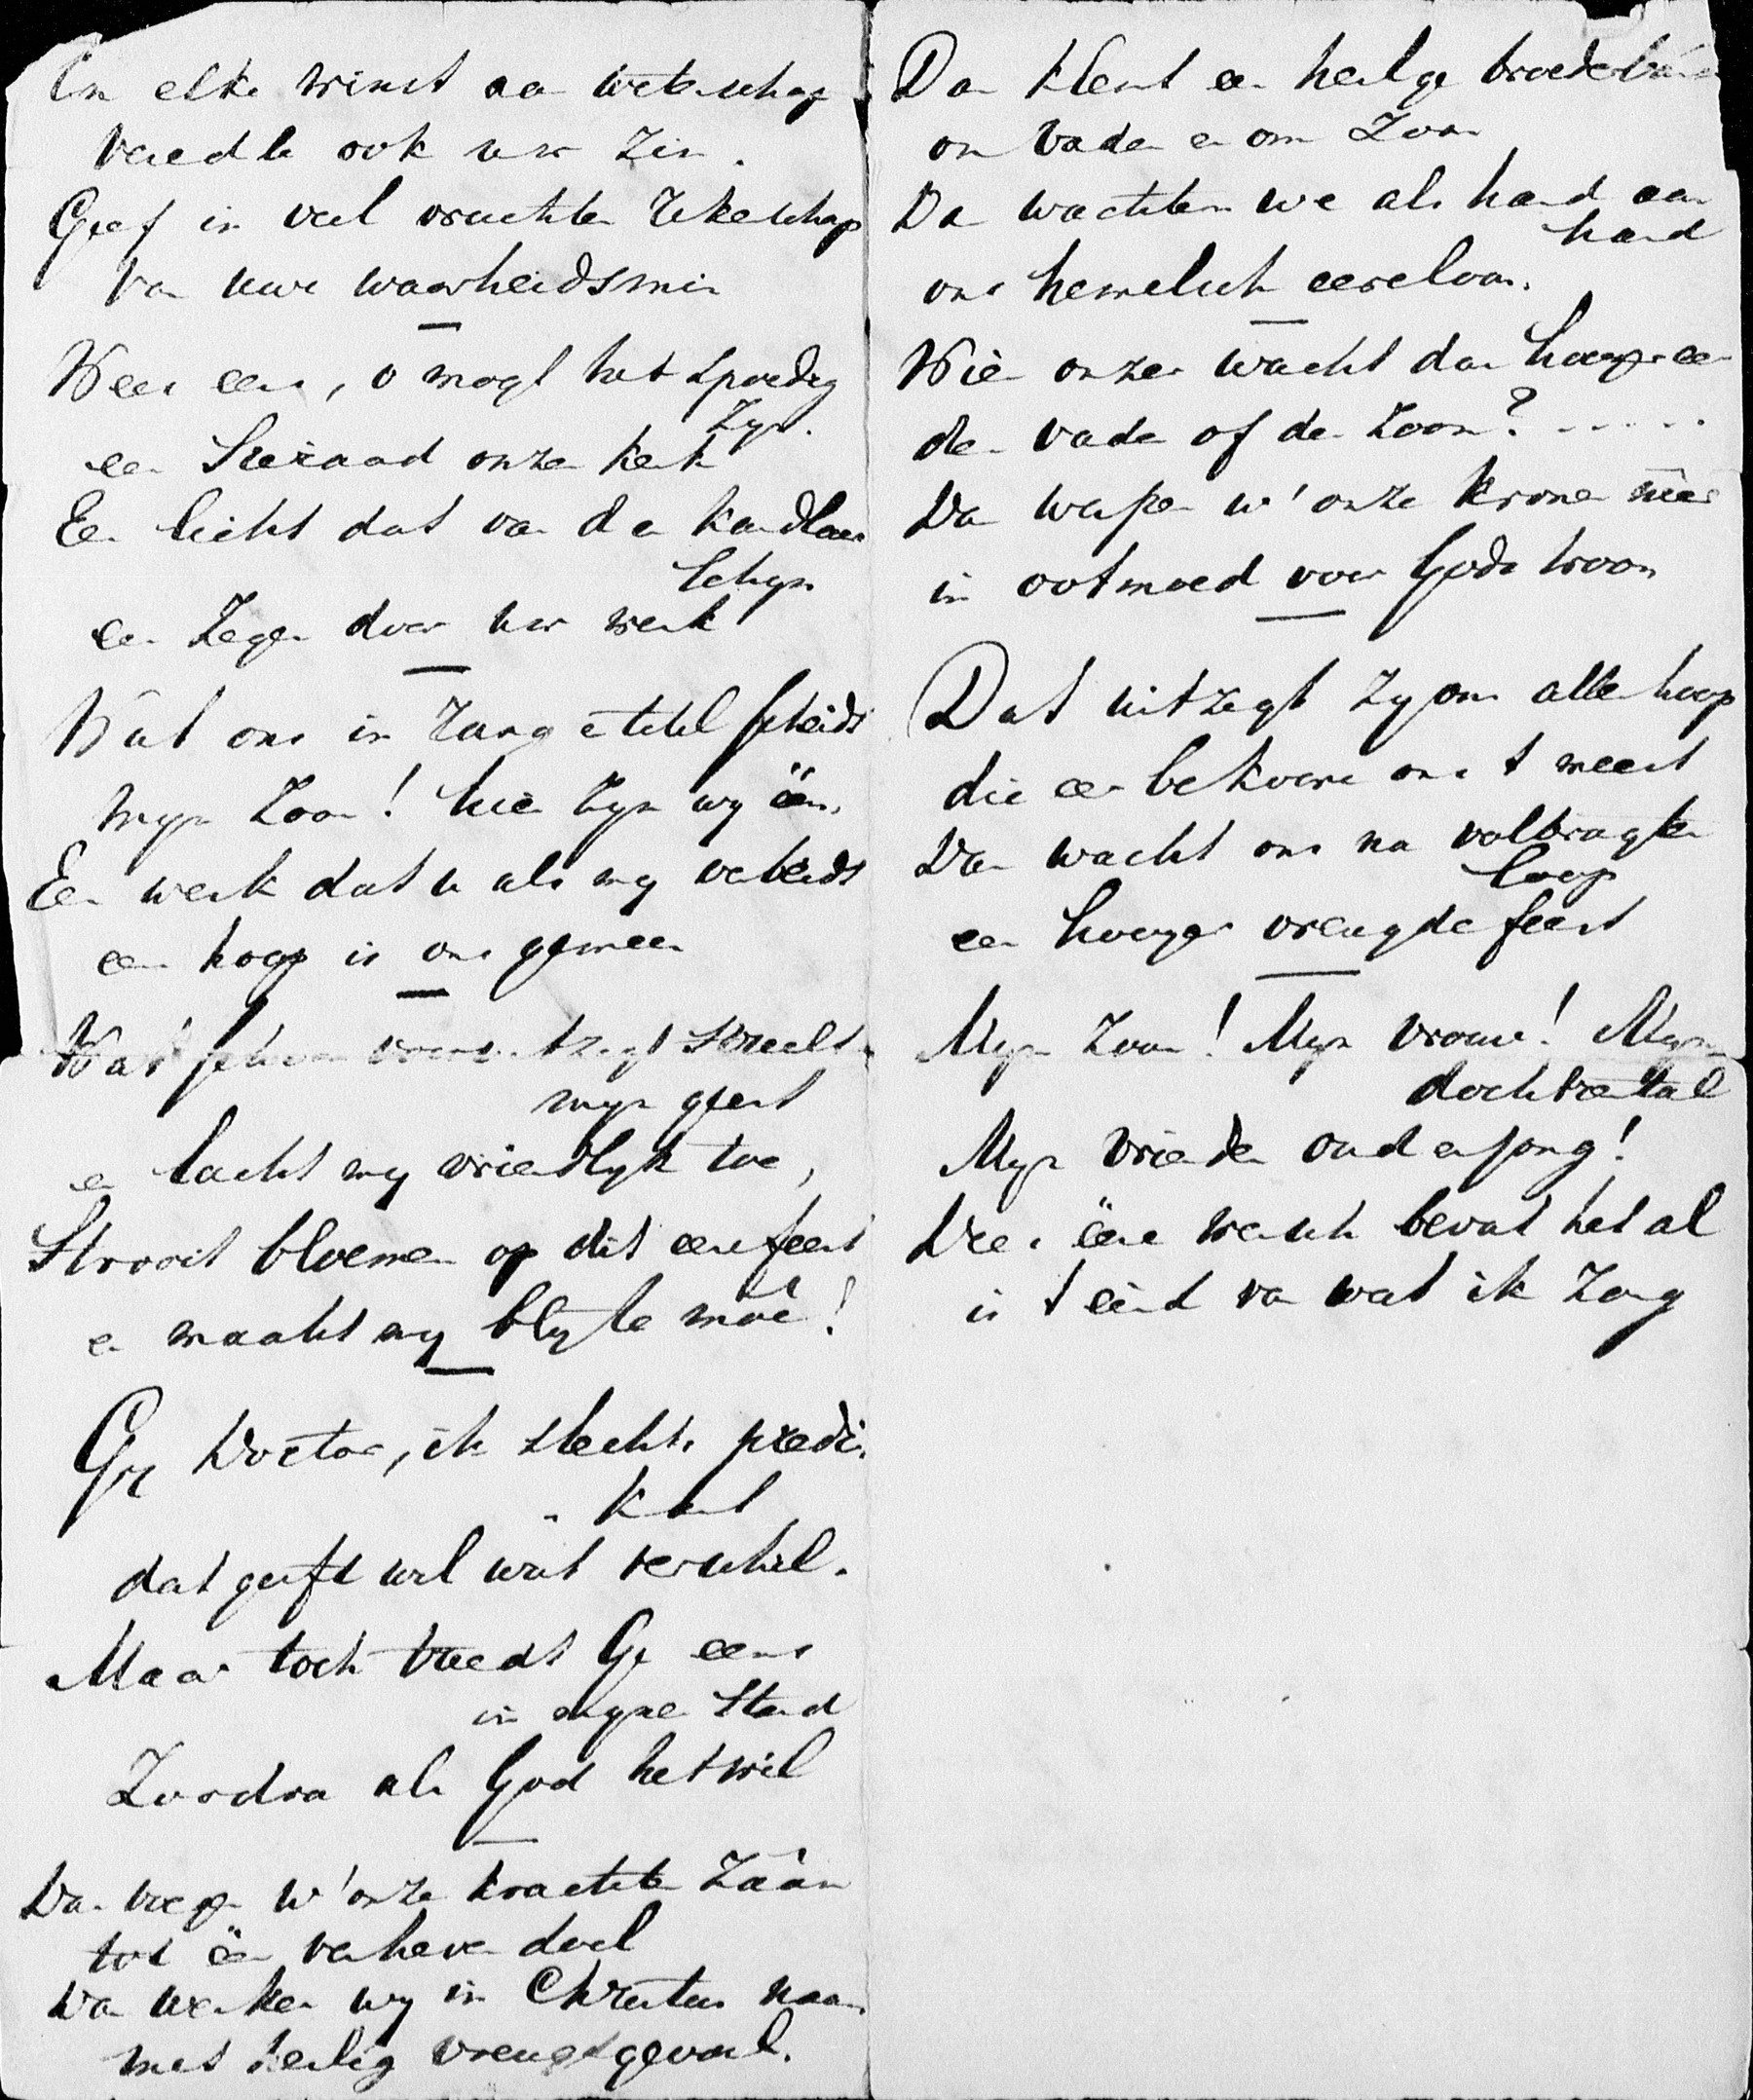 En elke winst aan wetenschap
veredle ook uw zin.
Geef in veel vruchten rekenschap
van uwe waarheidsmin
Wees eens, o mogt het spoedig
zyn.
een Sieraad onzer kerk
Een licht dat van den kandlaar
schyn
een zegen door uw werk
Wat ons in rang en titel scheidt
myn Zoon! hier zyn wy één,
Een werk dat u als my verbeidt
een hoop is ons gemeen
Dat streelt
myn geest
en lacht my vriendlyk toe,
Strooit bloemen op dit eerefeest
en maakt my bly te moê!
Gy Doctor, ik slechts predi-
-kant
dat geeft wel wat verschil.
Maar toch treedt Ge eens
in mynen stand
Zoodra als God het wil
Dan wy onze krachten zaâm
tot één verheven doel
Dan werken wy in Christus naam
met heilig vreugdgevoel.
Dan klemt een heilge broederband
om Vader en om Zoon
Dan wachten we als hand aan
hand
ons hemelsch eereloon.
Wien onzer wacht dan hooger eer
den vader of den Zoon? .....
Dan werpen w' onze kronen neêr
in ootmoed voor Gods troon
Dat uitzegt zy ons aller hoop
die eer bekoore ons 't meest
Dan wacht ons na volbragten
loop
een hooger vreugdefeest
Myn Zoon! Myn Vrouw! Myn
dochtrental
Myn Vrienden oud en jong!
Deez' ééne wensch bevat het al
is 't eind van wat ik zong